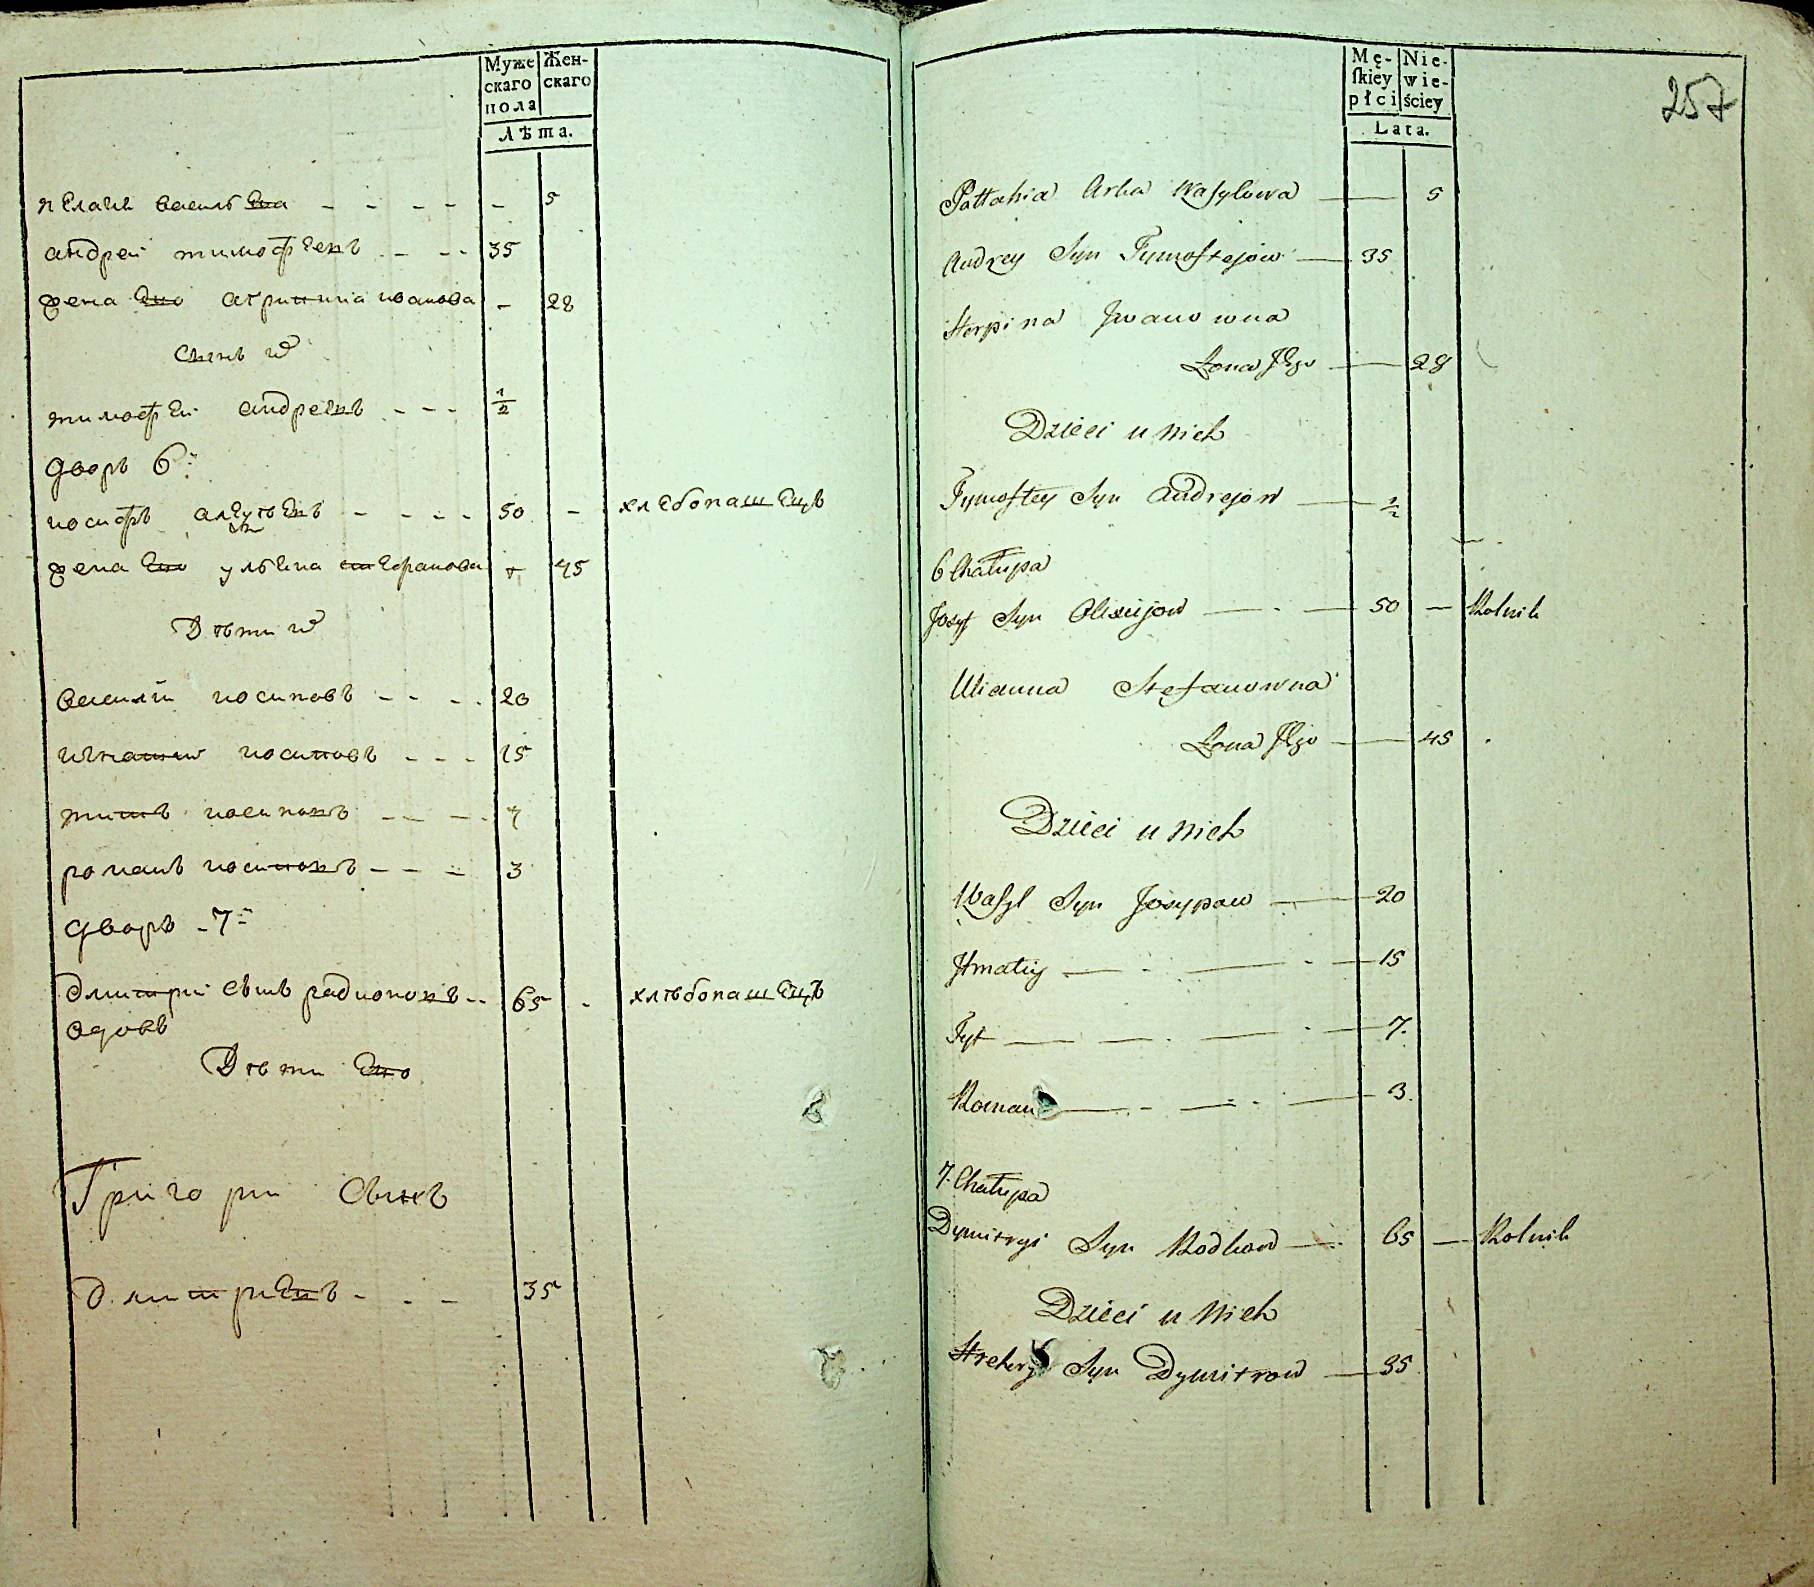 Муже
скаго
пола
Жен-
скаго
Лѣта.
пелагия василева - - - - - 5
андреи тимофеевъ - - - 35
жена ево агрипина иванова - 28
Сынъ их
тимофеи андреевъ - - - 1/2
дворъ 6й
иосифъ алеѯѣевъ - - - - 50 - хлебопашецъ
жена ево улѣяна стефанова - 45
Дѣти их
василий иосиповъ - - - - 20
игнатии иосиповъ - - - 15
титъ иосиповъ - - - - 7
романъ иосиповъ - - - 3
дворъ - 7й
дмитрии сынъ радионовъ - - 65 - хлѣбопашецъ
вдовъ
Дѣти ево
Григории Сынъ
дмитриевъ - - - 35
Mę-
ſkiey
płci
Nie-
wie-
ściey
Lata.
257
Pałłahia Wasylowa — 5
Andrey Syn Tymofiejow — 35
Horpina Jwanowna
Żona Jego — 28
Dzieci u Nich
Tymofiey Syn Andrejow — 1/2
6 Chałupa
Josyf Syn Olexiejow — 50 — Rolnik
Ulianna Stefanowna
Żona Jego — 45
Dzieci u Nich
Wasyl Syn Josypow — 20
Hnatiy — 15
Tyt — 7.
Roman — 3.
7. Chałupa
Dymitryi Syn Rodkow — 65 — Rolnik
Dzieci u Nich
Syn Dymitrow — 35